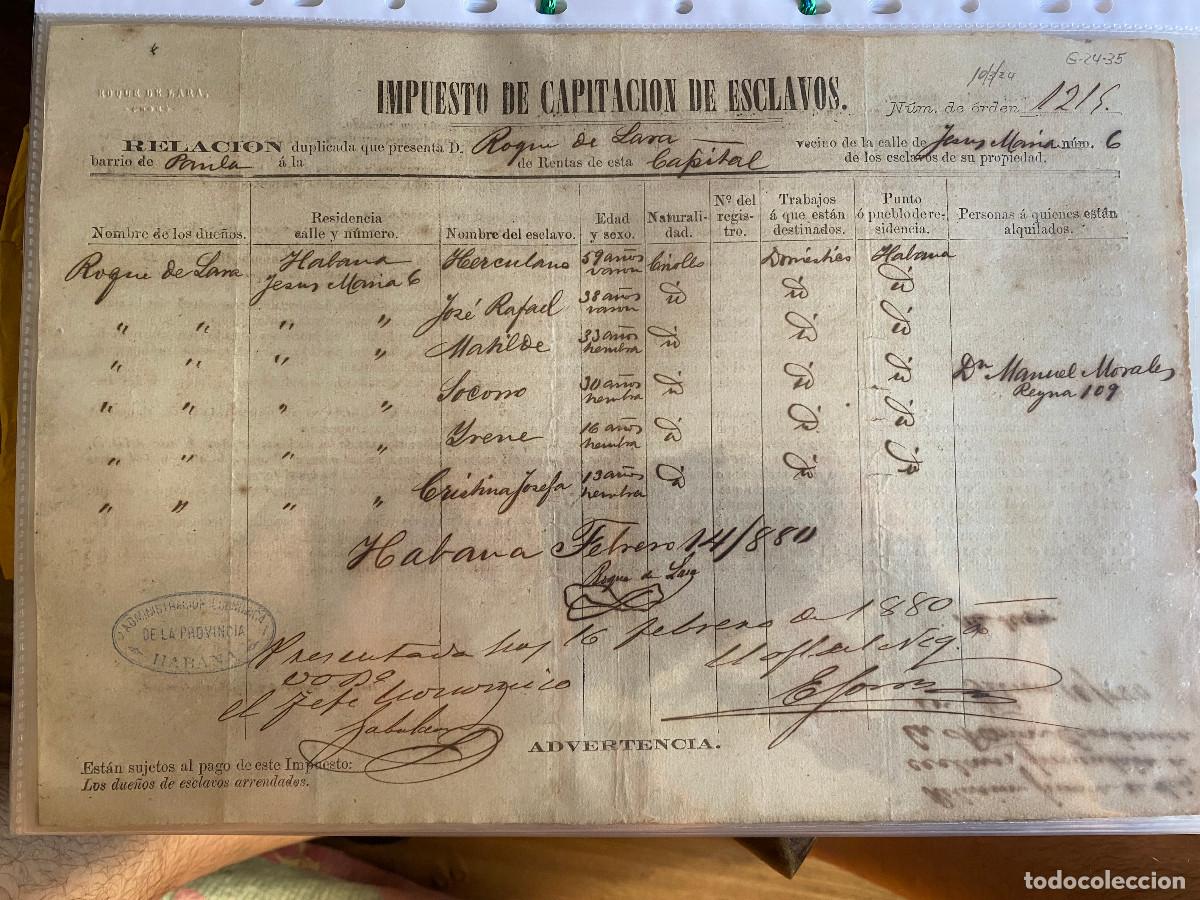 G-24-35
10/3/24
ROQUE DE LARA,
IMPUESTO DE CAPITACION DE ESCLAVOS.
Núm. de órden 1215.
RELACION duplicada que presenta D. Roque de Lara vecino de la calle de Jesus Maria núm. 6
barrio de Paula á la de Rentas de esta Capital de los esclavos de su propiedad.
Nombre de los dueños. Residencia calle y número. Nombre del esclavo. Edad y sexo. Naturalidad. Nº del registro. Trabajos á que están destinados. Punto ó pueblo de residencia. Personas á quienes están alquilados.
Roque de Lara Habana Jesus Maria 6 Herculano 59 años varon Criollo Domésticos Habana
" " " " José Rafael 38 años varon id id id
" " " " Matilde 33 años hembra id id id
" " " " Socorro 30 años hembra id id id Dn Manuel Morales Reyna 109
" " " " Yrene 16 años hembra id id id
" " " " Cristina Josefa 13 años hembra id id id
Habana Febrero 14/880
Roque de Lara
ADMINISTRACION ECONOMICA
DE LA PROVINCIA
HABANA
Presentada hoy 16 febrero de 1880
El Jefe Economico
El Ofl del Neg.do
ADVERTENCIA.
Están sujetos al pago de este Impuesto:
Los dueños de esclavos arrendados.
todocoleccion